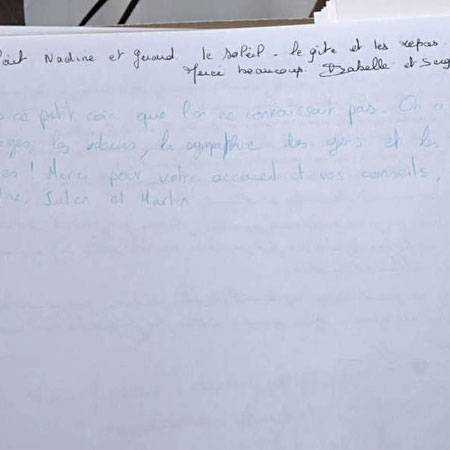 Nadine et Gerard. le soleil. le gîte et les repas.
Merci beaucoup. Isabelle et Serg
ce petit coin que l'on ne connaissait pas. On a
les odeurs, la sympathie des gens et les
! Merci pour votre accueil et vos conseils,
Julien et Martin